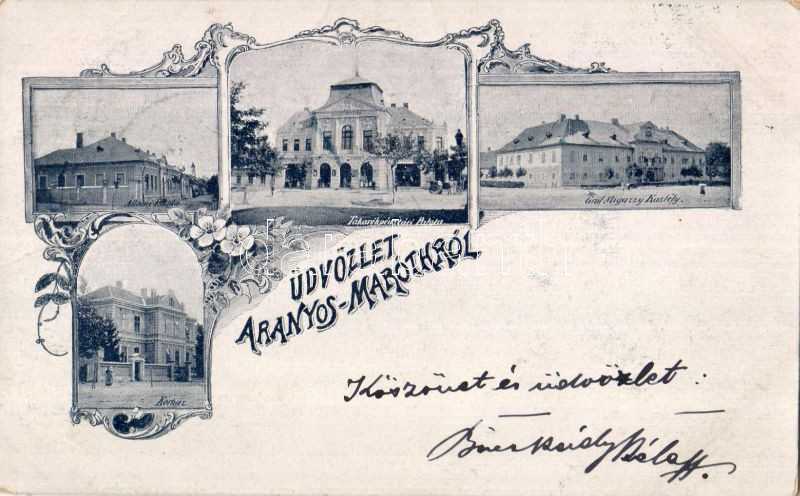 Állami iskola
Takarékpénztári Palota
Gróf Migazzy Kastély.
Kórház
ÜDVÖZLET
ARANYOS-MARÓTHRÓL
Köszönet és üdvözlet :
Béla